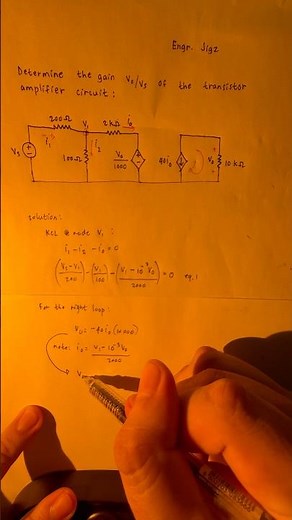 Engr. Jigz
Determine the gain V₀/Vs of the transistor
amplifier circuit:
200Ω V₁ 2kΩ i₀
i₁ i₂
Vs 100Ω V₀/1000 40i₀ V₀ 10kΩ
+ -
solution:
KCL @ node V₁:
i₁ - i₂ - i₀ = 0
(Vs - V₁ / 200) - (V₁ / 100) - (V₁ - 10⁻³V₀ / 2000) = 0 eq.1
For the right loop:
V₀ = -40i₀(10000)
note: i₀ = V₁ - 10⁻³V₀ / 2000